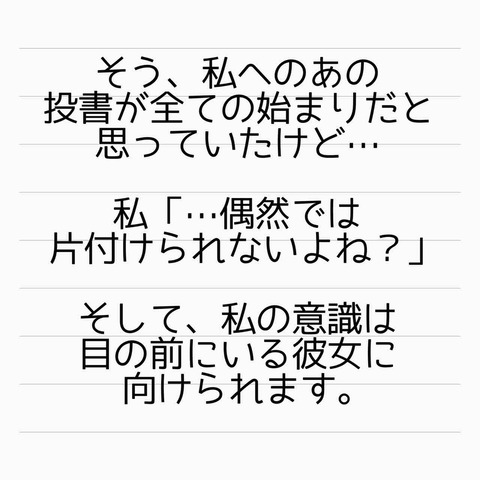 そう、私へのあの
投書が全ての始まりだと
思っていたけど…
私「…偶然では
片付けられないよね？」
そして、私の意識は
目の前にいる彼女に
向けられます。